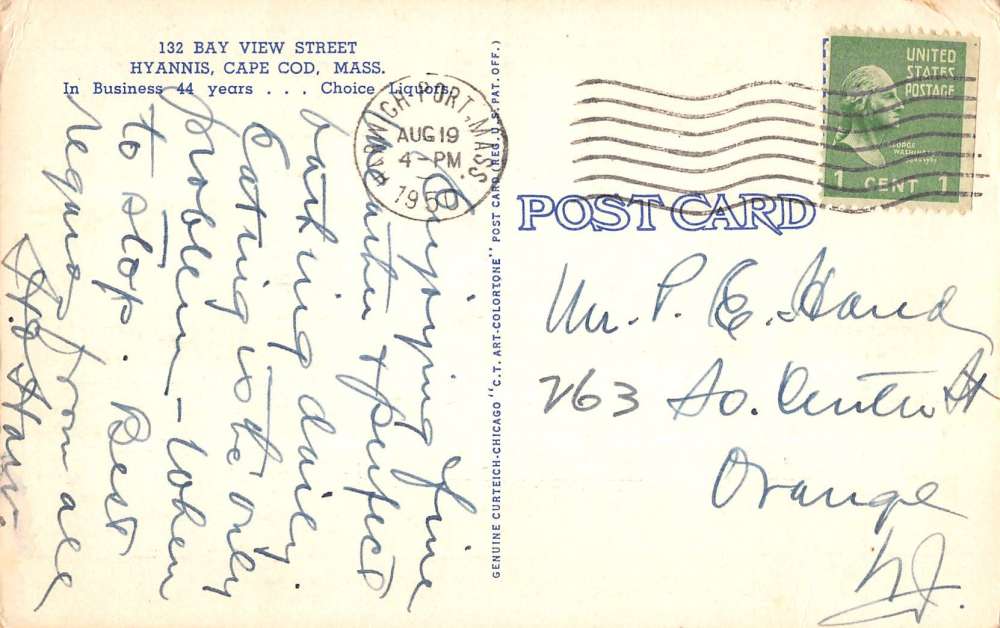 132 BAY VIEW STREET
HYANNIS, CAPE COD, MASS.
In Business 44 years . . . Choice Liquors
HARWICH PORT, MASS.
AUG 19
4-PM
1950
UNITED
STATES
POSTAGE
GEORGE
WASHINGTON
1 CENT 1
POST CARD
GENUINE CURTEICH-CHICAGO "C.T. ART-COLORTONE" POST CARD (REG. U.S. PAT. OFF.)
Enjoying fine
weather & perfect
bathing daily.
Eating is the only
problem - when
to stop. Best
regards from all
Mr. P. E. Hand
263 So. Center St
Orange
NJ.